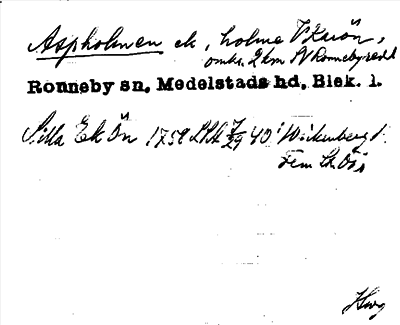 Aspholmen ek, holme V Karön,
omkr. 2 km SV Ronneby redd
Ronneby sn, Medelstads hd, Blek. l.
Silla Ek Ön 1759 LSA 7/29 40 i Wickenberg
Fem
Hwg